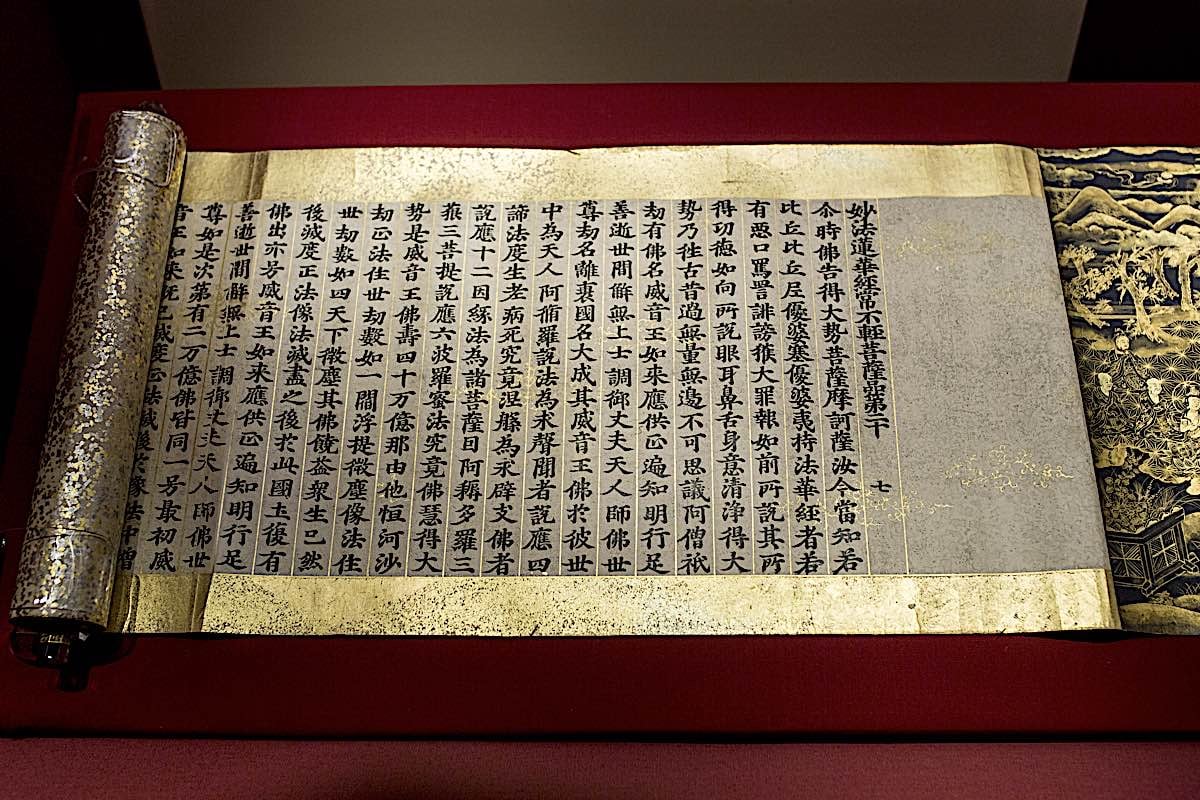 妙法蓮華經常不輕菩薩品第二十 七
尒時佛告得大勢菩薩摩訶薩汝今當知若
比丘比丘尼優婆塞優婆夷持法華經者若
有惡口罵詈誹謗獲大罪報如前所說其所
得功德如向所說眼耳鼻舌身意清淨得大
勢乃往古昔過無量無邊不可思議阿僧祇
劫有佛名威音王如來應供正遍知明行足
善逝世間解無上士調御丈夫天人師佛世
尊劫名離衰國名大成其威音王佛於彼世
中為天人阿脩羅說法為求聲聞者說應四
諦法度生老病死究竟涅槃為求辟支佛者
說應十二因緣法為諸菩薩因阿耨多羅三
藐三菩提說應六波羅蜜法究竟佛慧得大
勢是威音王佛壽四十万億那由他恒河沙
劫正法住世劫數如一閻浮提微塵像法住
世劫數如四天下微塵其佛饒益眾生已然
後滅度正法像法滅盡之後於此國土復有
佛出亦号威音王如來應供正遍知明行足
善逝世間解無上士調御丈夫天人師佛世
尊如是次第有二万億佛皆同一号最初威
音王如來既已滅度正法滅後於像法中增